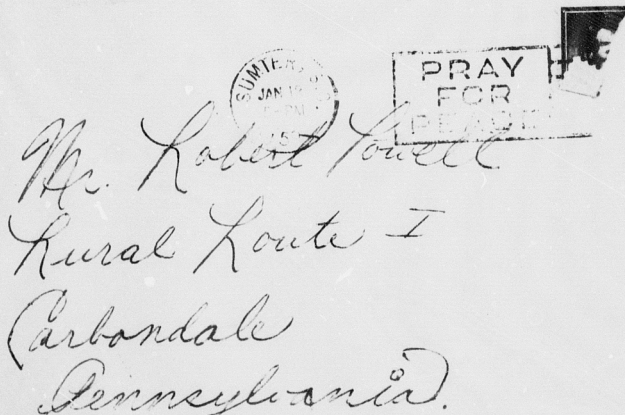 SUMTER
JAN 19
PM
PRAY
FOR
PEACE
Mr. Robert Powell
Rural Route I
Carbondale
Pennsylvania.